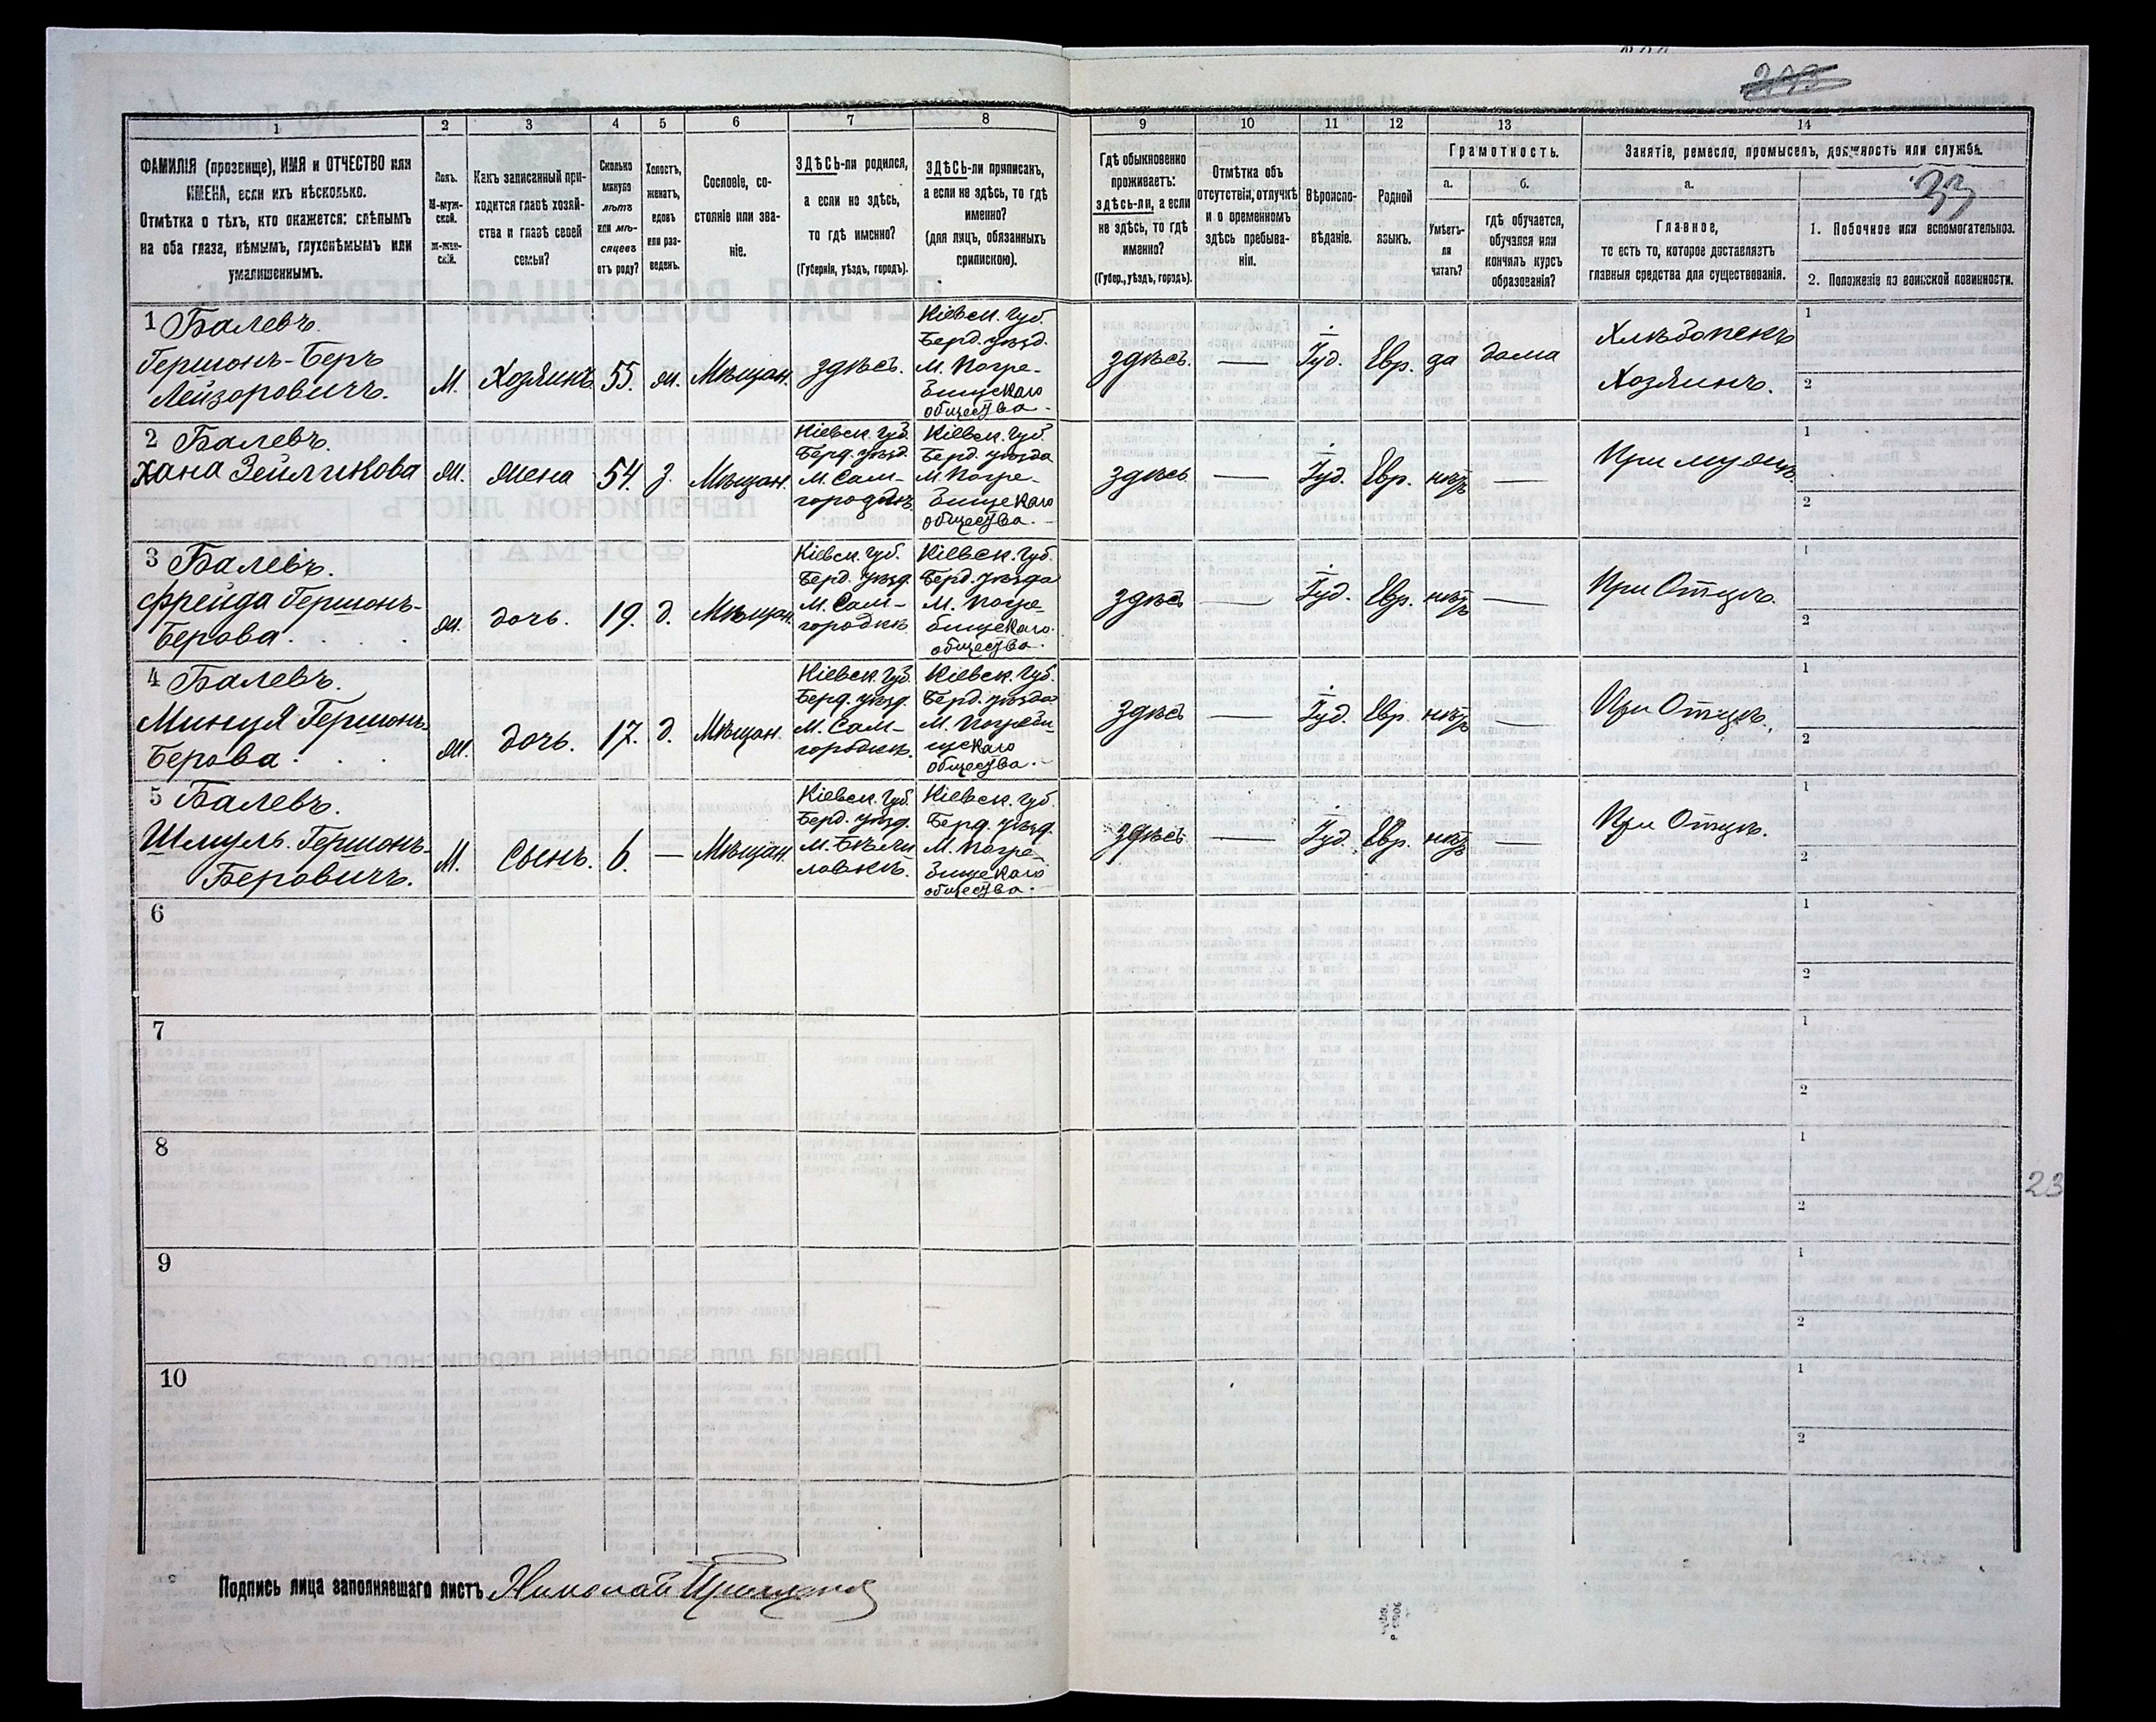 1
2
3
4
5
6
7
8
9
10
11
12
13
14
ФАМИЛІЯ (прозвище), ИМЯ и ОТЧЕСТВО или
ИМЕНА, если ихъ нѣсколько.
Отмѣтка о тѣхъ, кто окажется: слѣпымъ
на оба глаза, нѣмымъ, глухонѣмымъ или
умалишеннымъ.
Полъ.
М-муж-
ской.
ж-жен-
скій.
Какъ записанный при-
ходится главѣ хозяй-
ства и главѣ своей
семьи?
Сколько
минуло
лѣтъ
или мѣ-
сяцевъ
отъ роду?
Холостъ,
женатъ,
вдовъ
или раз-
веденъ.
Сословіе, со-
стояніе или зва-
ніе.
ЗДѢСЬ-ли родился,
а если не здѣсь,
то гдѣ именно?
(Губернія, уѣздъ, городъ).
ЗДѢСЬ-ли приписанъ,
а если не здѣсь, то гдѣ
именно?
(для лицъ, обязанныхъ
припискою).
Гдѣ обыкновенно
проживаетъ:
здѣсь-ли, а если
не здѣсь, то гдѣ
именно?
(Губер., уѣздъ, городъ).
Отмѣтка объ
отсутствіи, отлучкѣ
и о временномъ
здѣсь пребыва-
ніи.
Вѣроиспо-
вѣданіе.
Родной
языкъ.
Грамотность.
а.
б.
Умѣетъ-
ли
читать?
гдѣ обучается,
обучался или
кончилъ курсъ
образованія?
Занятіе, ремесло, промыселъ, должность или служба.
а.
33
Главное,
то есть то, которое доставляетъ
главныя средства для существованія.
1. Побочное или вспомогательное.
2. Положеніе по воинской повинности.
1 Балевъ.
Гершонъ-Беръ
Лейзоровичъ.
М.
Хозяинъ
55.
ж.
Мѣщан.
здѣсь.
Кіевск. Губ.
Берд. уѣзд.
М. Погре-
бищскаго
общества.
здѣсь.
—
Іуд.
Евр.
да
дома
Хлѣбопекъ
Хозяинъ.
1
2
2 Балевъ.
Хана Зейликова
ж.
жена
54.
з.
Мѣщан.
Кіевск. Губ.
Берд. уѣзд.
М. Сам-
городкѣ
Кіевск. Губ.
Берд. уѣзда
М. Погре-
бищскаго
общества.
здѣсь
—
Іуд.
Евр.
нѣтъ
—
При мужѣ.
1
2
3 Балевъ.
Фрейда Гершонъ-
Берова.
ж.
дочь.
19.
д.
Мѣщан.
Кіевск. Губ.
Берд. уѣзд.
М. Сам-
городкѣ
Кіевск. Губ.
Берд. уѣзда
М. Погре-
бищскаго
общества.
здѣсь
—
Іуд.
Евр.
нѣтъ
—
При Отцѣ.
1
2
4 Балевъ.
Минця Гершонъ-
Берова.
ж.
дочь.
17.
д.
Мѣщан.
Кіевск. Губ.
Берд. уѣзд.
М. Сам-
городкѣ.
Кіевск. Губ.
Берд. уѣзда
М. Погреби-
щскаго
общества.
здѣсь
—
Іуд.
Евр.
нѣтъ
—
При Отцѣ.
1
2
5 Балевъ.
Шмуль Гершонъ-
Беровичъ.
М.
Сынъ.
6.
—
Мѣщан.
Кіевск. Губ.
Берд. уѣзд.
М. Бѣли
ловкѣ.
Кіевск. Губ.
Берд. уѣзд.
М. Погре-
бищскаго
общества.
здѣсь
—
Іуд.
Евр.
нѣтъ
—
При Отцѣ.
1
2
6
1
2
7
1
2
8
1
2
23
9
1
2
10
1
2
Подпись лица заполнявшаго листъ Николай